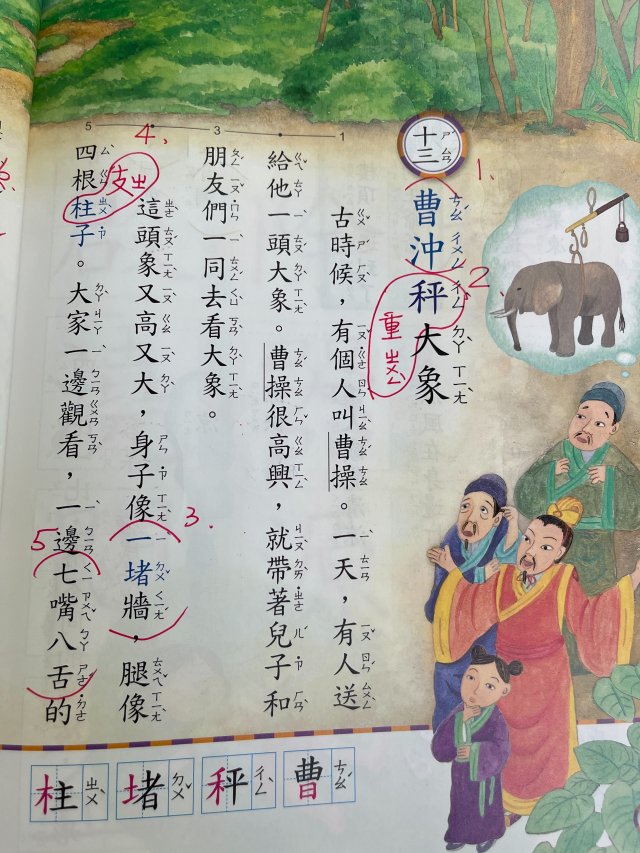 十三
曹沖秤大象
古時候，有個人叫曹操。一天，有人送
給他一頭大象。曹操很高興，就帶著兒子和
朋友們一同去看大象。
這頭象又高又大，身子像一堵牆，腿像
四根柱子。大家一邊觀看，一邊七嘴八舌的
1
3
5
1.
2.
重
3.
4.
5
曹 ㄘㄠˊ
秤 ㄔㄥˋ
堵 ㄉㄨˇ
柱 ㄓㄨˋ